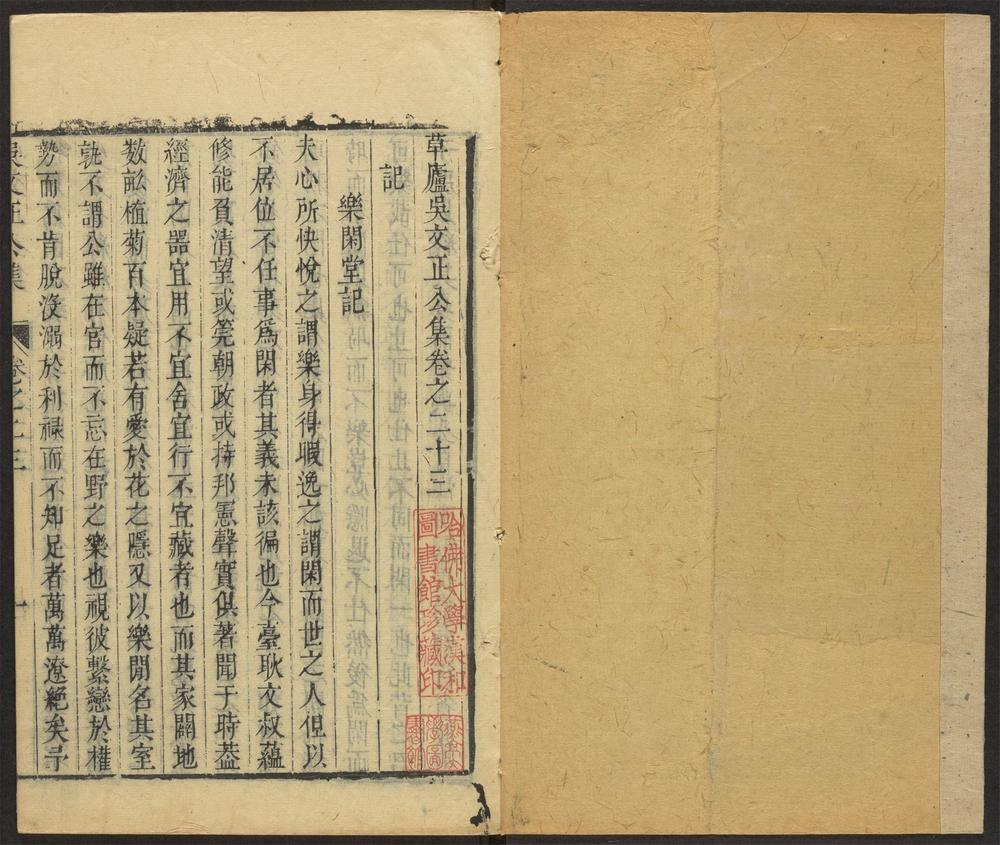 草廬吳文正公集卷之二十三
記
樂閑堂記
夫心所快悅之謂樂身得暇逸之謂閑而世之人但以
不居位不任事爲閑者其義未該徧也今臺耿文叔蘊
修能負清望或筦朝政或持邦憲聲實俱著聞于時葢
經濟之器宜用不宜舍宜行不宜藏者也而其家闢地
数畝植菊百本疑若有愛於花之隱又以樂閒名其室
孰不謂公雖在官而不忘在野之樂也視彼繫戀於權
勢而不肯脫沒溺於利祿而不知足者萬萬遼絶矣予
吳文正公集
卷之二十三
一
哈佛大學漢和
圖書館珍藏印